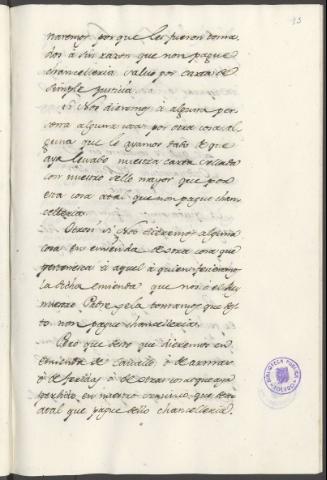 13
naremos por que les fueron toma-
dos á sin razon que non pague
chancelleria salvo por carta de
simple justicia.
Si Nos dieremos á alguna per-
sona alguna cosa por otra cosa al-
guna que le ayamos dado é que
aya levado nuestra carta sellada
con nuestro sello mayor que por
esta cosa atal que non pague chan-
celleria.
Otrosi si Nos dieremos alguna
cosa en emienda de otra cosa que
pertenesca á aquel á quien ficieremos
la dicha emienda que nos ó el Rey
nuestro Padre gela tomamos que des-
to non pague chancelleria.
Pero que desto que dieremos en
emienda de cavallo, ó de armas
ó de ó de otras cosas que aya
perdido en nuestro servicio, que desto
atal que pague dello chancelleria.
BIBLIOTECA PUBLICA
TOLEDO